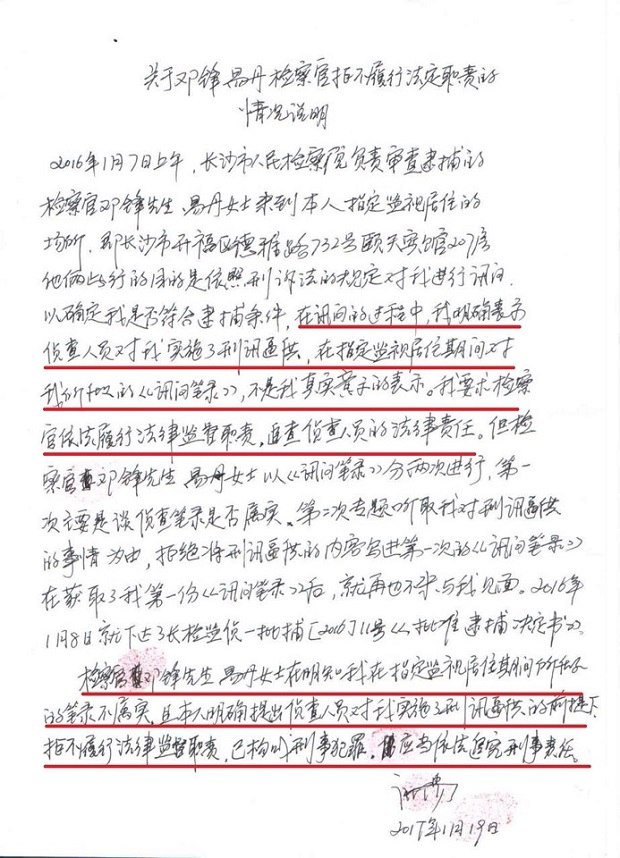 关于邓锋、易丹检察官拒不履行法定职责的
情况说明
2016年1月7日上午，长沙市人民检察院负责审查逮捕的
检察官邓锋先生、易丹女士来到本人指定监视居住的
场所，即长沙市开福区德雅路732号颐天宾馆207房
他俩此行的目的是依照刑诉法的规定对我进行讯问，
以确定我是否符合逮捕条件，在讯问的过程中，我明确表示
侦查人员对我实施了刑讯逼供，在指定监视居住期间对
我所做的《讯问笔录》，不是我真实意思的表示。我要求检察
官依法履行法律监督职责，追查侦查人员的法律责任。但检
察官邓锋先生、易丹女士以《讯问笔录》分两次进行，第一
次主要是谈侦查笔录是否属实、第二次专题听取我对刑讯逼供
的事情为由，拒绝将刑讯逼供的内容写进第一次的《讯问笔录》
在获取了我第一份《讯问笔录》后，就再也不来与我见面。2016年
1月8日就下达了长检监侦一批捕[2016]11号《批准逮捕决定书》。
检察官邓锋先生、易丹女士在明知我在指定监视居住期间所做
的笔录不属实，且本人明确提出侦查人员对我实施了刑讯逼供的前提下
拒不履行法律监督职责，已构成刑事犯罪，应当依法追究刑事责任。
2017年1月19日